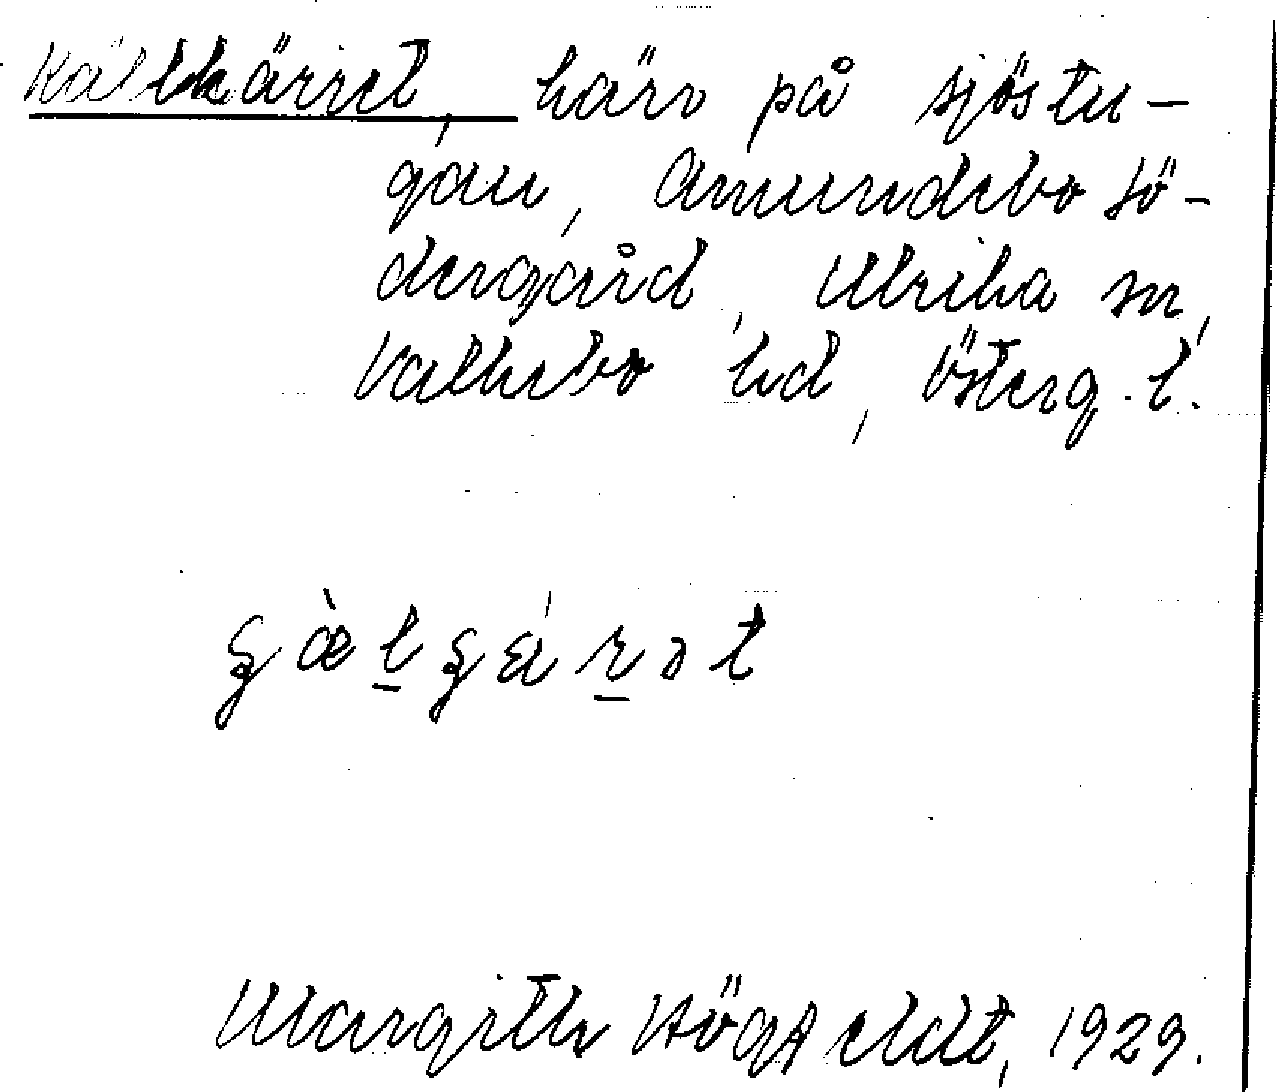 Källkärret, kärr på sjöstu-
gan, Amundebo sö-
dergård, Ulrika sn,
Valkebo hd, Österg. l.
Margitte Högfeldt, 1929.